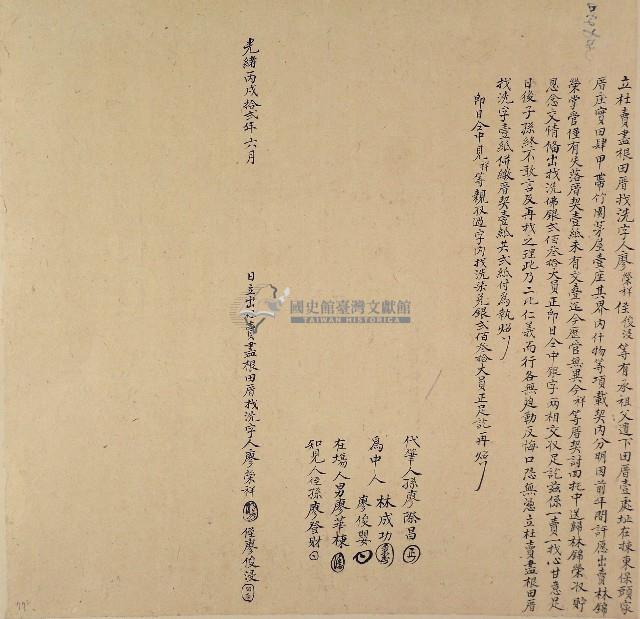 立杜賣盡根田厝找洗字人廖榮祥侄俊浸等有承祖父遺下田厝壹處址在揀東保頭家
厝庄實田肆甲帶竹圍茅屋壹座其界內什物等項載契內分明因前年間許應出賣林錦
榮掌管僅有失落厝契壹紙未有交叠迄今歷官無異今祥等厝契討回托中送歸林錦榮收貯
恩念交情備出找洗佛銀弍佰叁拾大員正即日仝中銀字兩相交收足訖茲係一賣一找心甘意足
日後子孫終不敢言及再找之理此乃二比仁義而行各無迫勒反悔口恐無憑立杜賣盡根田厝
找洗字壹紙併繳厝契壹紙共弍紙付為執炤
即日仝中見祥等親收過字內找洗柒兌銀弍佰叁拾大員正足訖再炤
代筆人孫廖際昌
為中人林成功
廖俊嬰
在場人男廖華棟
知見人侄孫廖發財
光緒丙戌拾弍年六月
日立出杜賣盡根田厝找洗字人廖榮祥 侄廖俊浸
國史館臺灣文獻館
TAIWAN HISTORICA